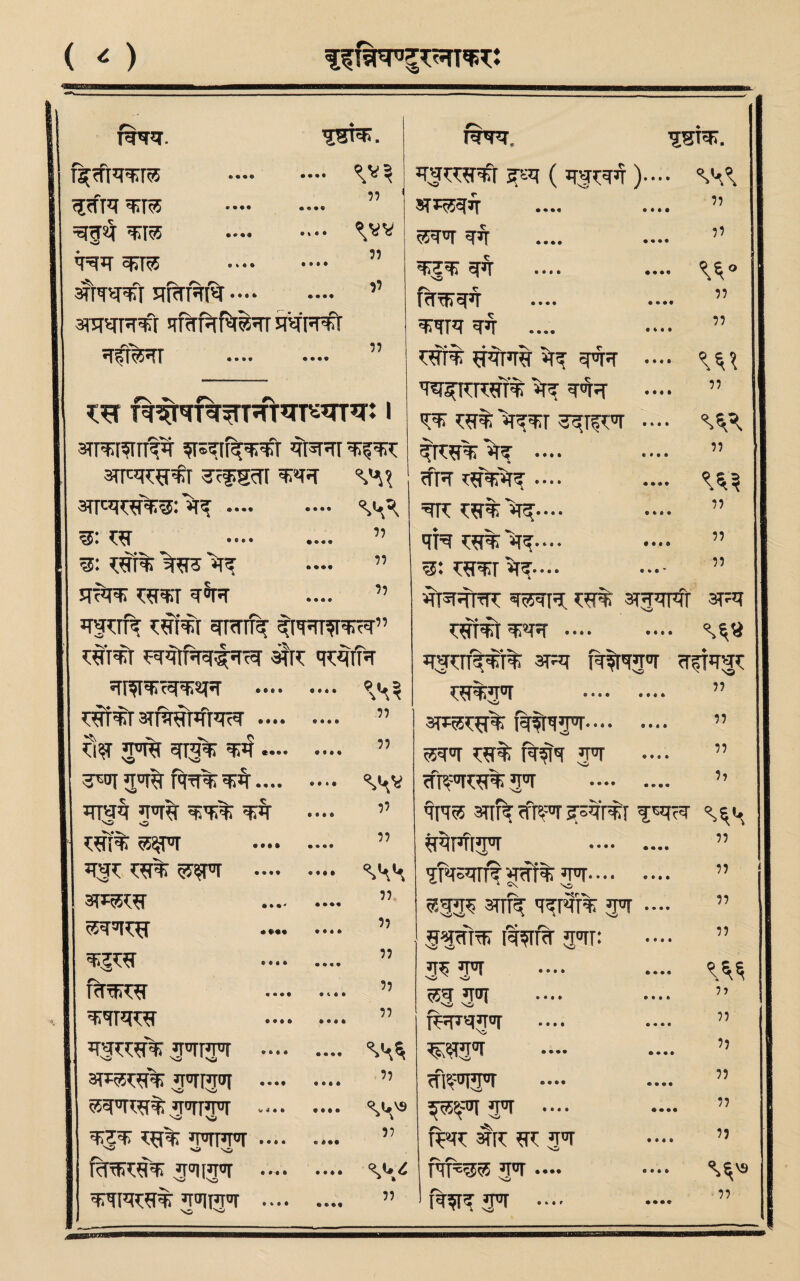 ( ८ )
बृहन्निघण्टुरत्नाकरः
विषय. पृष्ठांक.
द्वितीयकाल .... .... १४३
तृतीय काल .... .... ”
चतुर्थ काल .... .... १४४
पंचम काल .... .... ”
औषधकी प्रतिनिधि .... .... ”
अप्रधानकी प्रतिनिधि
.... .... ”
रस विशेषविज्ञानीयाध्यायः ।
आकाशादि
आप्यरसकी उत्कृष्टता कथन १५१
आप्यरसकेछः भेद .... .... १५२
छः रस .... .... ”
छः रसोंके त्रेसठ भेद .... ”
प्रत्येक रसका वर्णन .... ”
मधुरादि रसोंको वातादि
रसोंको स्वयोनिवर्द्धनत्व और परयोनि
नाशकत्वकथन .... .... १५३
रसोंको अग्निसोमीयत्व .... .... ”
शीत गुणके वायुके कर्म .... .... ”
उष्ण गुणके पित्तके कर्म .... .... १५४
माधुर्य गुणके कफके कर्म .... ”
रसोंके लक्षण .... .... ”
मधुर रसके लक्षण .... .... १५५
अम्लरस .... .... ”
लवणरस .... .... ”
कटुरस .... .... ”
तिक्तरस .... .... ”
कषायरस .... .... ”
मधुररसके गुणागुण .... .... १५६
अम्लरसके गुणागुण .... .... ”
लवणरसके गुणागुण .... .... १५७
कटुक रसके गुणागुण .... .... ”
तिक्तरसके गुणागुण .... .... १५८
कषायरसके गुणागुण .... .... ”
विषय. पृष्ठांक.
मधुररसकी द्रव्य ( मधुरवर्ग ) .... १५९
अम्लवर्ग .... .... ”
लवण वर्ग .... .... ”
कटुक वर्ग .... .... १६०
तिक्तवर्ग .... .... ”
कषाय वर्ग .... .... ”
रसोंके संयोगसे भेद वर्णन .... १६१
मधुरादिरसोंके भेद वर्णन .... ”
एक रसके भेदका उदाहरण .... १६२
दोरसके भेद .... .... ”
तीन रसकेभेद .... .... १६३
चार रसके भेद .... .... ”
पाँच रसके भेद .... .... ”
छः रसका भेद .... .... ”
भोजनोत्तर बलवान् रसके अनुपानमें अन्य
रसोंको कथन .... .... १६४
मधुरादिकोंके अन्य विशेषगुण तहाँमधुर
रसकेगुण .... .... ”
अम्लरसके विशेषगुण .... .... ”
लवण रसके विशेष गुण .... ”
तीक्ष्णरसके गुण .... .... ”
शीतल आदि तीक्ष्ण द्रव्योंको पृथक्त्व १६५
.... .... ”
पृथिव्यादि भूतोंके गुण .... .... ”
लघुगुरु आदि पदार्थोंके गुण .... ”
सुश्रुतोक्त विंशति गुणाः .... ”
गुरु गुण .... .... १६६
लघु गुण .... .... ”
स्निग्धगुण .... .... ”
रूक्षगुण .... .... ”
तीक्ष्णगुण .... .... ”
श्लक्ष्ण गुण .... .... ”
स्थिर और सर गुण .... ”
पिच्छल गुण .... .... १६७
विशद गुण .... .... ”